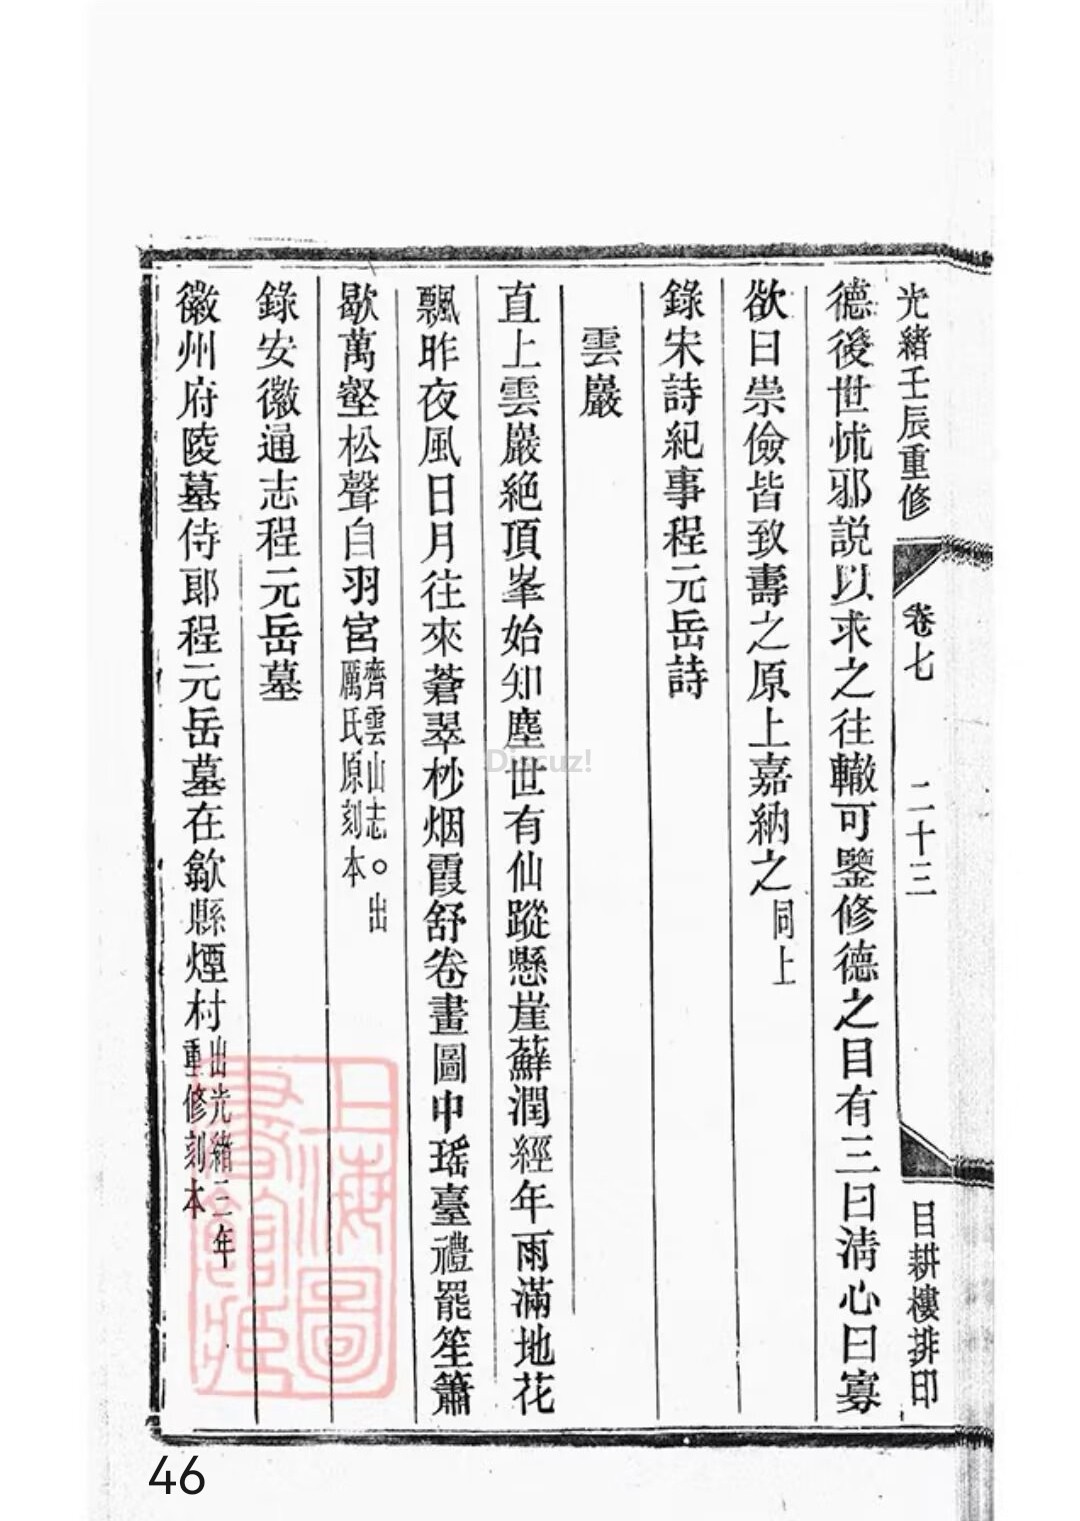 光緒壬辰重修
卷七
二十三
目耕樓排印
德後世怵邪説以求之往轍可鑒修德之目有三曰清心曰寡
欲曰崇儉皆致壽之原上嘉納之同上
錄宋詩紀事程元岳詩
雲巖
直上雲巖絶頂峯始知塵世有仙蹤懸崖蘚潤經年雨滿地花
飄昨夜風日月往來蒼翠杪烟霞舒卷畫圖中瑤臺禮罷笙簫
歇萬壑松聲自羽宮齊雲山志○出
厲氏原刻本
錄安徽通志程元岳墓
徽州府陵墓侍郎程元岳墓在歙縣煙村出光緒三年
重修刻本
上海圖
書館藏
Discuz!
46